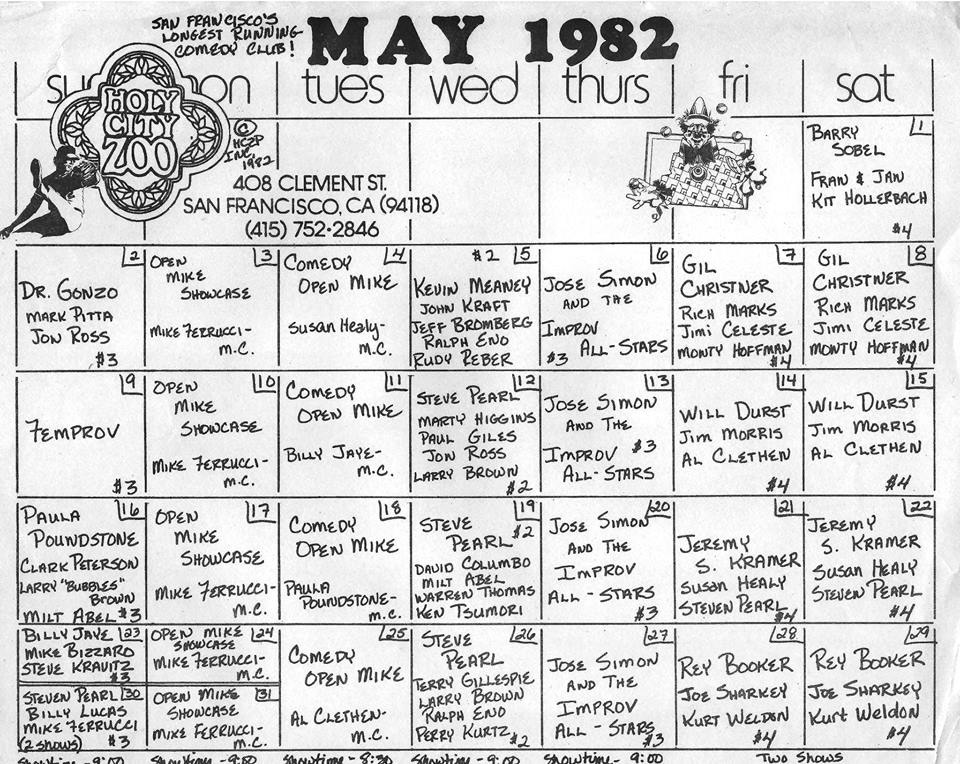 SAN FRANCISCO'S
LONGEST RUNNING
COMEDY CLUB!
MAY 1982
su
on
tues
wed
thurs
fri
sat
HOLY
CITY
ZOO
© HCZP
INC.
1982
408 CLEMENT ST.
SAN FRANCISCO, CA (94118)
(415) 752-2846
1
BARRY
SOBEL
FRAN & JAN
KIT HOLLERBACH
$4
2
DR. GONZO
MARK PITTA
JON ROSS
$3
3
OPEN
MIKE
SHOWCASE
MIKE FERRUCCI-
M.C.
4
COMEDY
OPEN MIKE
SUSAN HEALY-
M.C.
$2 5
KEVIN MEANEY
JOHN KRAFT
JEFF BROMBERG
RALPH ENO
RUDY REBER
6
JOSE SIMON
AND THE
IMPROV
$3 ALL-STARS
7
GIL
CHRISTNER
RICH MARKS
JIMI CELESTE
MONTY HOFFMAN
$4
8
GIL
CHRISTNER
RICH MARKS
JIMI CELESTE
MONTY HOFFMAN
$4
9
FEMPROV
$3
10
OPEN
MIKE
SHOWCASE
MIKE FERRUCCI-
M.C.
11
COMEDY
OPEN MIKE
BILLY JAYE-
M.C.
12
STEVE PEARL
MARTY HIGGINS
PAUL GILES
JON ROSS
LARRY BROWN
$2
13
JOSE SIMON
AND THE
IMPROV $3
ALL-STARS
14
WILL DURST
JIM MORRIS
AL CLETHEN
$4
15
WILL DURST
JIM MORRIS
AL CLETHEN
$4
16
PAULA
POUNDSTONE
CLARK PETERSON
LARRY "BUBBLES"
BROWN
MILT ABEL $3
17
OPEN
MIKE
SHOWCASE
MIKE FERRUCCI-
M.C.
18
COMEDY
OPEN MIKE
PAULA
POUNDSTONE-
M.C.
19
STEVE
PEARL $2
DAVID COLUMBO
MILT ABEL
WARREN THOMAS
KEN TSUMORI
20
JOSE SIMON
AND THE
IMPROV
ALL-STARS
$3
21
JEREMY
S. KRAMER
SUSAN HEALY
STEVEN PEARL
$4
22
JEREMY
S. KRAMER
SUSAN HEALY
STEVEN PEARL
$4
BILLY JAYE 23
MIKE BIZZARO
STEVE KRAVITZ
$3
OPEN MIKE 24
SHOWCASE
MIKE FERRUCCI-
M.C.
25
COMEDY
OPEN MIKE
AL CLETHEN-
M.C.
26
STEVE
PEARL
TERRY GILLESPIE
LARRY BROWN
RALPH ENO
PERRY KURTZ $2
27
JOSE SIMON
AND THE
IMPROV
ALL-STARS
$3
28
REY BOOKER
JOE SHARKEY
KURT WELDON
$4
29
REY BOOKER
JOE SHARKEY
KURT WELDON
$4
STEVEN PEARL 30
BILLY LUCAS
MIKE FERRUCCI
(2 SHOWS) $3
OPEN MIKE 31
SHOWCASE
MIKE FERRUCCI-
M.C.
SHOWTIME - 9:00
SHOWTIME - 9:00
SHOWTIME - 8:30
SHOWTIME - 9:00
SHOWTIME - 9:00
TWO SHOWS